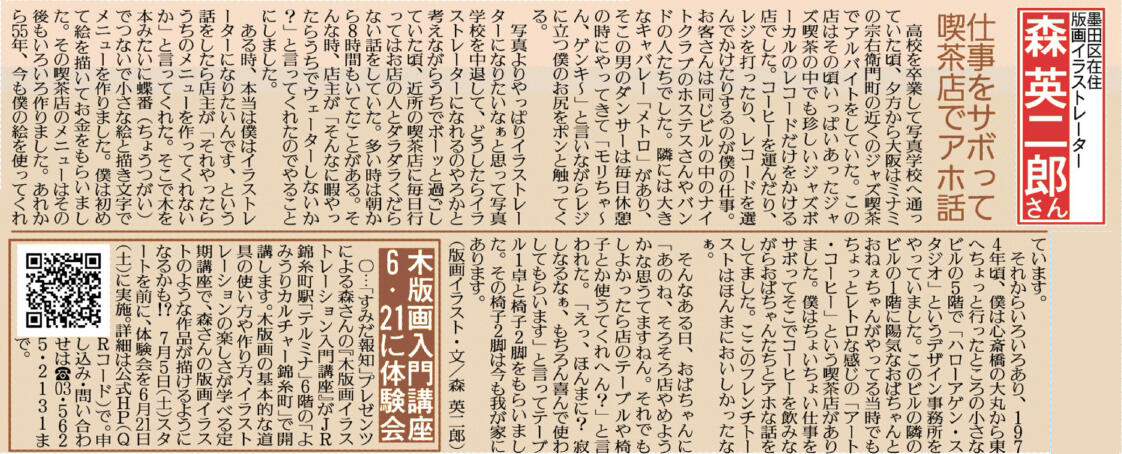 墨田区在住
版画イラストレーター
森 英二郎さん
仕事をサボって
喫茶店でアホ話
　高校を卒業して写真学校へ通っ
ていた頃、夕方から大阪はミナミ
の宗右衛門町の近くのジャズ喫茶
でアルバイトをしていた。この
店はその頃いっぱいあったジャ
ズ喫茶の中でも珍しいジャズボ
ーカルのレコードだけをかける
店でした。コーヒーを運んだり、
レジを打ったり、レコードを選
んでかけたりするのが僕の仕事。
お客さんは同じビルの中のナイ
トクラブのホステスさんやバン
ドの人たちでした。隣には大き
なキャバレー「メトロ」があり、
そこの男のダンサーは毎日休憩
の時にやってきて「モリちゃ〜
ん、ゲンキ〜」と言いながらレジ
に立つ僕のお尻をポンと触ってく
る。
　写真よりやっぱりイラストレー
ターになりたいなぁと思って写真
学校を中退して、どうしたらイラ
ストレーターになれるのやろかと
考えながらうちでボーッと過ごし
ていた頃、近所の喫茶店に毎日行
ってはお店の人とダラダラくだら
ない話をしていた。多い時は朝か
ら8時間もいてたことがある。そ
んな時、店主が「そんなに暇やっ
たらうちでウェーターしないか
？」と言ってくれたのでやること
にしました。
　ある時、本当は僕はイラストレ
ーターになりたいんです、という
話をしたら店主が「それやったら
うちのメニューを作ってくれない
か」と言ってくれた。そこで木を
本みたいに蝶番（ちょうつがい）
でつないで小さな絵と描き文字で
メニューを作りました。僕は初め
て絵を描いてお金をもらいまし
た。その喫茶店のメニューはその
後もいろいろ作りました。あれか
ら55年、今も僕の絵を使ってくれ
ています。
　それからいろいろあり、197
4年頃、僕は心斎橋の大丸から東
へちょっと行ったところの小さな
ビルの5階で「ハローアゲン・ス
タジオ」というデザイン事務所を
やっていました。このビルの隣の
ビルの1階に陽気なおばちゃんと
おねぇちゃんがやってる当時でも
ちょっとレトロな感じの「アート
・コーヒー」という喫茶店があり
ました。僕はちょいちょい仕事を
サボってそこでコーヒーを飲みな
がらおばちゃんたちとアホな話を
してました。ここのフレンチトー
ストはほんまにおいしかったな
ぁ。
　そんなある日、おばちゃんに
「あのね、そろそろ店やめよう
かな思うてますねん。それでも
しよかったら店のテーブルや椅
子とか使うてくれへん？」と言
われた。「えっ、ほんまに？　寂
しなるなぁ、もちろん喜んで使わ
してもらいます」と言ってテーブ
ル1卓と椅子2脚をもらいまし
た。その椅子2脚は今も我が家に
あります。
（版画イラスト・文／森 英二郎）
木版画入門講座
6・21に体験会
　〇…「すみだ報知」プレゼンツ
による森さんの『木版画イラス
トレーション入門講座』がJR
錦糸町駅「テルミナ」6階の「よ
みうりカルチャー錦糸町」で開
講します。木版画の基本的な道
具の使い方や作り方、イラスト
レーションの楽しさが学べる定
期講座で、森さんの版画イラス
トのような作品が描けるように
なるかも!?　7月5日（土）スタ
ートを前に、体験会を6月21日
（土）に実施。詳細は公式HP（Q
Rコード）で。申
し込み・問い合わ
せは☎03・562
5・2131ま
で。